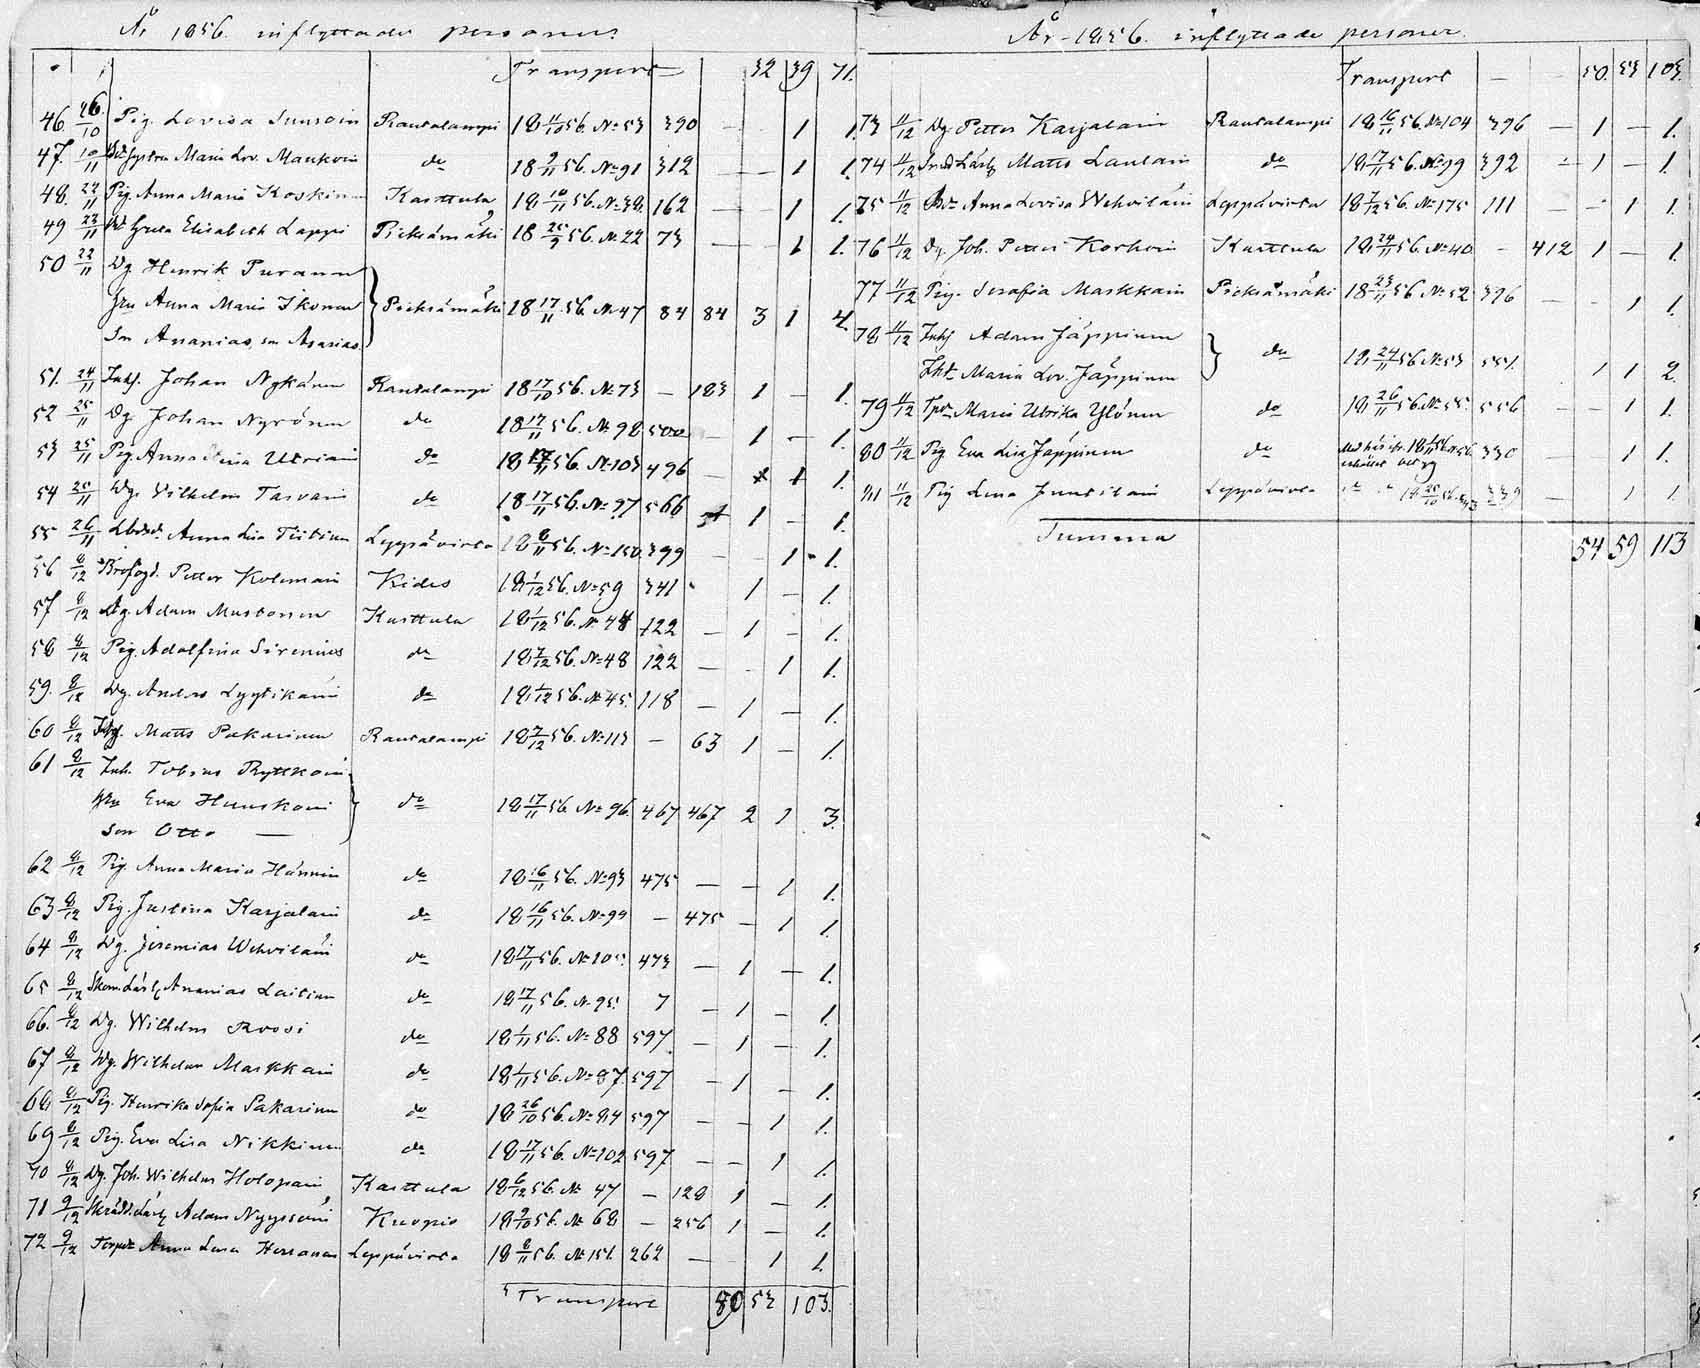 År 1856. inflyttade personer.
Transport 32 39 71.
46. 26/10 Pig. Lovisa Rautalampi 18 11/10 56. No 53 390 — — 1 1.
47. 10/11 Maria Lov. Maukoin do 18 9/11 56. No 91 312 — — 1 1.
48. 22/11 Pig. Anna Maria Koskinen Karttula 18 10/11 56. No 38. 162 — 1 1.
49 22/11 Greta Elisabeth Lappi Pieksämäki 18 25/9 56. No 22 73 — — 1 1.
50 22/11 Dg Henrik Puranen
Hu Anna Maria Ikonen Pieksämäki 18 17/11 56. No 47 84 84 3 1 4.
Son Ananias, son Asarias.
51. 24/11 Inhs. Johan Nykänen Rautalampi 18 17/10 56. No 73 — 183 1 — 1.
52 25/11 Dg Johan Nyrönen do 18 17/11 56. No 98 500 — 1 — 1.
53 25/11 Pig Anna Utriain do 18 17/11 56. No 103 496 — 1 1.
54 25/11 Dg. Vilhelm Tarvain do 18 17/11 56. No 97 566 1 — 1.
55 26/11 Anna Lisa Tiitinen Leppävirta 18 8/11 56. No 150. 399 — — 1 1.
56 8/12 Petter Kolemain Kides 18 1/12 56. No 59 341 1 — 1.
57 8/12 Dg. Adam Mustonen Karttula 18 1/12 56. No 48 122 — 1 — 1.
58 8/12 Pig. Adolfina Sirenius do 18 7/12 56. No 48 122 — — 1 1.
59. 8/12 Dg. Anders Lyytikäin do 18 1/12 56. No 45. 118 — 1 — 1.
60 8/12 Inhs. Matts Pakarinen Rautalampi 18 7/12 56. No 113 — 63 1 — 1.
61 8/12 Inh. Tobias Ryttköin
Hu Eva Huuskoin do 18 17/11 56. No 96. 467 467 2 1 3.
Son Otto —
62 8/12 Pig. Anna Maria Hännin do 18 16/11 56. No 93 475 — — 1 1.
63 8/12 Pig. Justina Karjalain do 18 16/11 56. No 99 — 475 — 1 1.
64 8/12 Dg. Jeremias Wehviläin do 18 17/11 56. No 473 — 1 — 1.
65 8/12 Skom. Lärl. Ananias Laitinen do 18 17/11 56. No 95. 7 — 1 — 1.
66. 8/12 Dg. Wilhelm Roosi do 18 1/11 56. No 88 597 — 1 — 1.
67 8/12 Dg. Wilhelm Markkain do 18 1/11 56. No 87. 597 — 1 — 1.
68 8/12 Pig. Henrika Sofia Pakarinen do 18 26/10 56. No 84 597 — — 1 1.
69 8/12 Pig. Eva Lisa Nikkinen do 18 17/11 56. No 102 597 — — 1 1.
70 8/12 Dg. Joh. Wilhelm Holopain Karttula 18 6/12 56. No 47 — 128 1 — 1.
71 9/12 Skrädd. Lärl. Adam Nyyssöin Kuopio 18 9/10 56. No 68 — 256 1 — 1.
72 9/12 Anna Lena Leppävirta 18 8/11 56. No 151. 262 — 1 1.
Transport 50 53 103.
År 1856. inflyttade personer.
Transport — — 50. 53 103.
73 11/12 Dg Petter Karjalain Rautalampi 18 16/11 56. No 104 396 — 1 — 1.
74 11/12 Lärl. Matts Laulain do 18 17/11 56. No 99 392 — 1 — 1.
75 11/12 Anna Lovisa Wehviläin Leppävirta 18 7/12 56. No 175 111 — — 1 1.
76 11/12 Dg. Joh. Petter Korhoin Karttula 18 24/11 56. No 40. — 412 1 — 1.
77 11/12 Pig. Serafia Markkain Pieksämäki 18 23/11 56. No 52 396 — — 1 1.
78 11/12 Inhs Adam Jäppinen
Maria Lov. Jäppinen do 18 24/11 56. No 53 551. 1 1 2.
79 11/12 Maria Ulrika Ylönen do 18 26/11 56. No 55. 556 — 1 1.
80 11/12 Pig Eva Lisa Jäppinen do 330 1 1.
81 11/12 Pig Lena Juutilain Leppävirta 339 — 1 1.
Summa 54 59 113